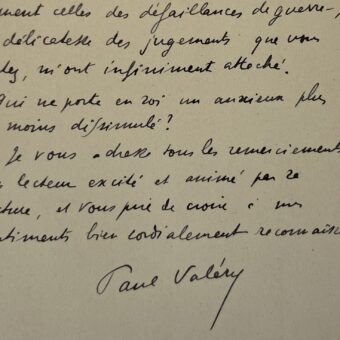 ment celles des défaillances de guerre,
délicatesse des jugements que vous
tez, m'ont infiniment attaché.
Qui ne porte en soi un anxieux plus
moins dissimulé?
Je vous adresse tous les remerciements
lecteur excité et animé par sa
ture, et vous prie de croire à mes
timents bien cordialement reconnaiss
Paul Valéry